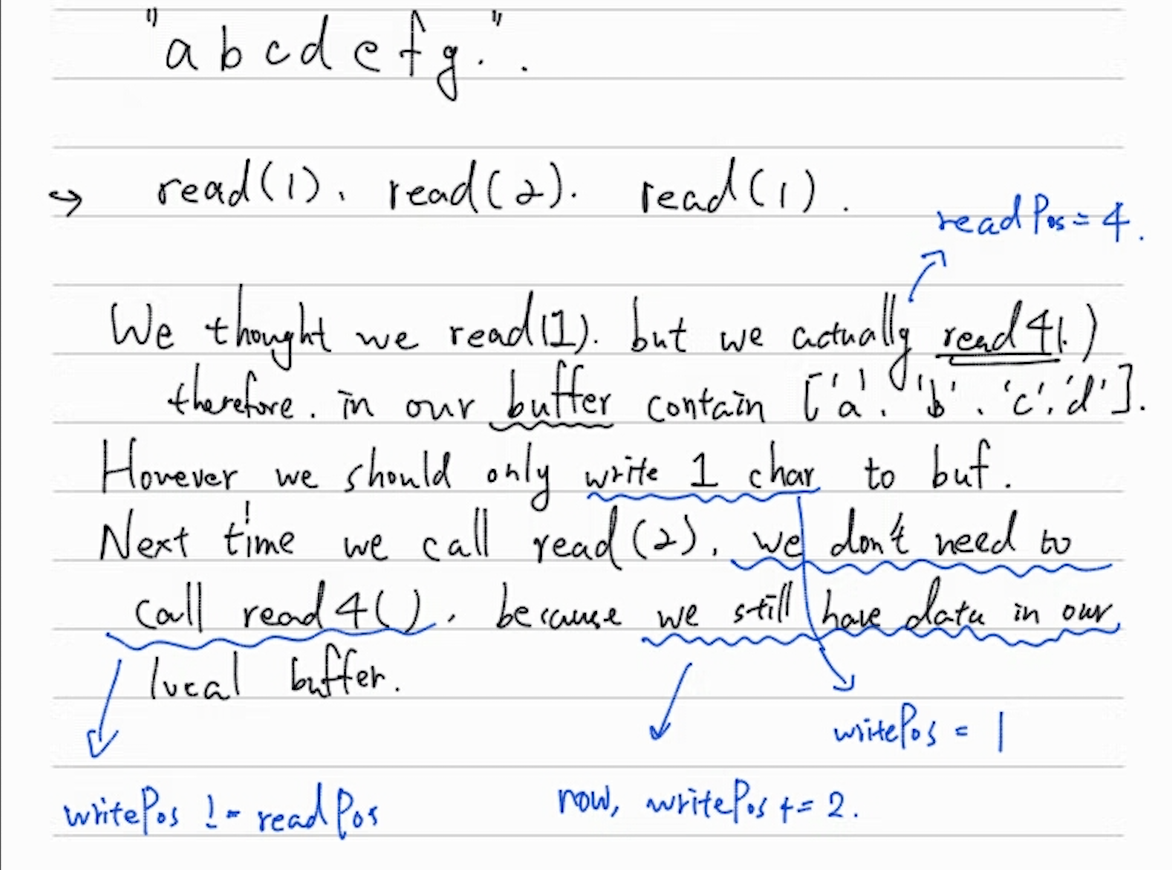 "abcdefg.".
→ read(1). read(2). read(1).
readPos = 4.
We thought we read(1). but we actually read4()
therefore. in our buffer contain ['a'. 'b'. 'c'. 'd'].
However we should only write 1 char to buf.
Next time we call read(2). we don't need to
call read4(). because we still have data in our
local buffer.
writePos = 1
writePos != readPos
now, writePos += 2.